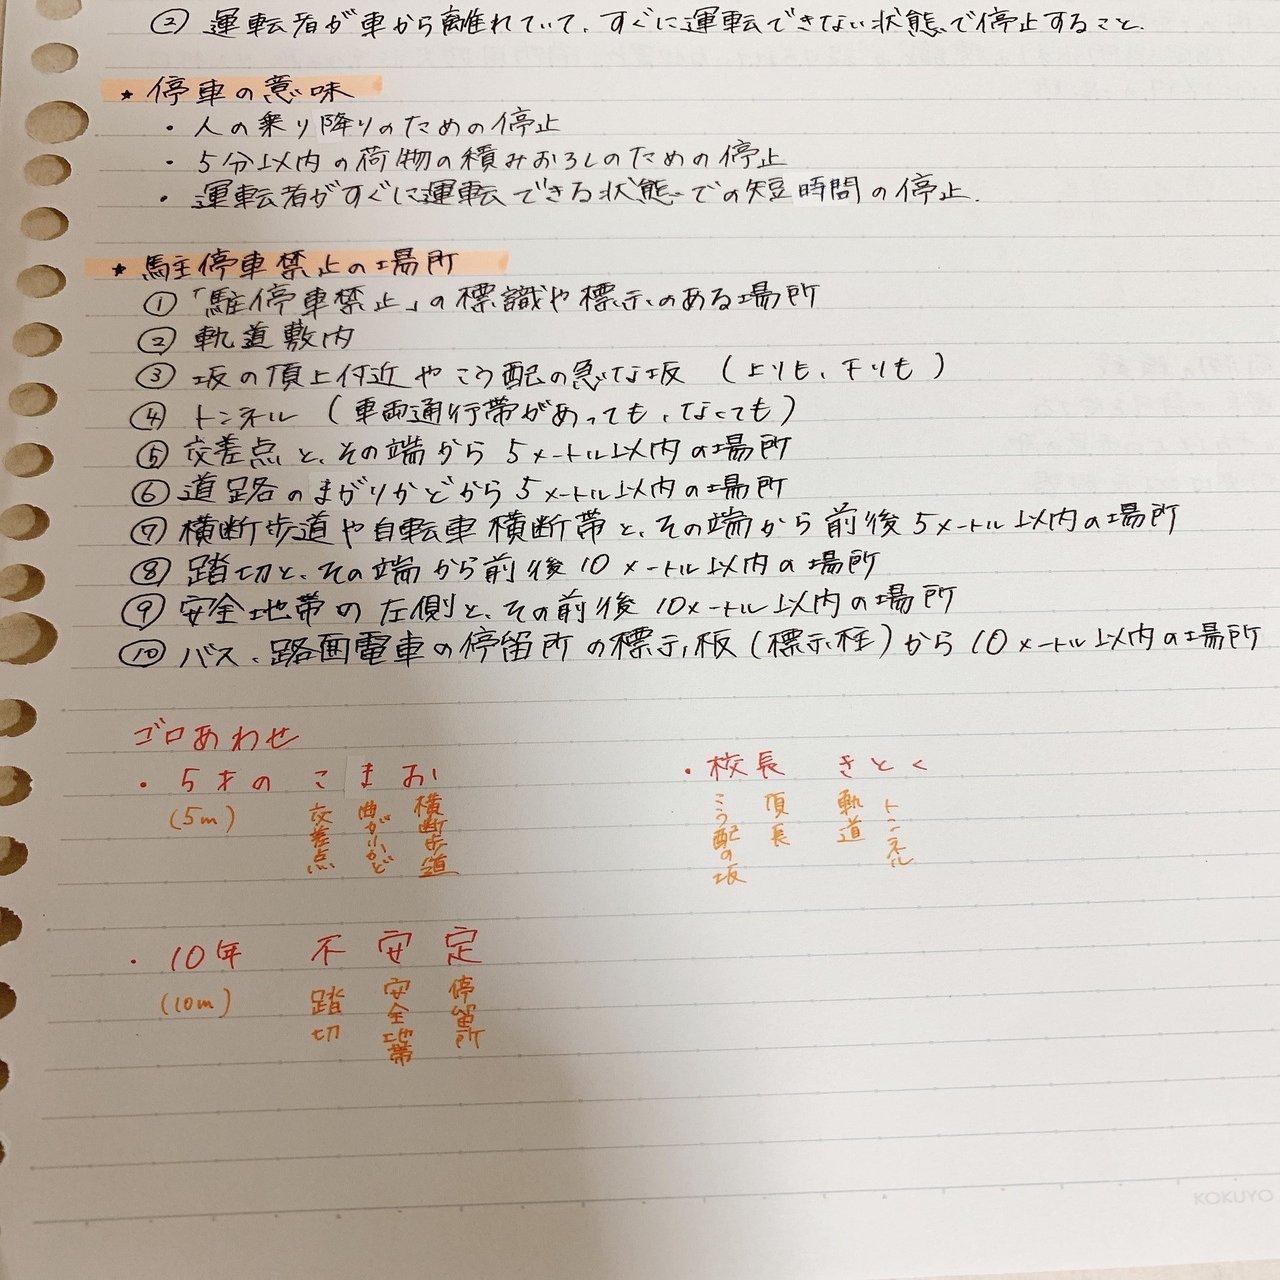 ② 運転者が車から離れていて、すぐに運転できない状態で停止すること.
★ 停車の意味
・人の乗り降りのための停止
・5分以内の荷物の積みおろしのための停止
・運転者がすぐに運転できる状態での短時間の停止.
★ 駐停車禁止の場所
①「駐停車禁止」の標識や標示のある場所
② 軌道敷内
③ 坂の頂上付近やこう配の急な坂 (上りも、下りも)
④ トンネル (車両通行帯があっても、なくても)
⑤ 交差点と、その端から5メートル以内の場所
⑥ 道路のまがりかどから5メートル以内の場所
⑦ 横断歩道や自転車横断帯と、その端から前後5メートル以内の場所
⑧ 踏切と、その端から前後10メートル以内の場所
⑨ 安全地帯の左側と、その前後10メートル以内の場所
⑩ バス、路面電車の停留所の標示板(標示柱)から10メートル以内の場所
ゴロあわせ
・5才の こ ま お
(5m) 交差点 曲がりかど 横断歩道
・校長 きとく
こう配の坂 頂長 軌道 トンネル
・10年 不 安 定
(10m) 踏切 安全地帯 停留所
KOKUYO